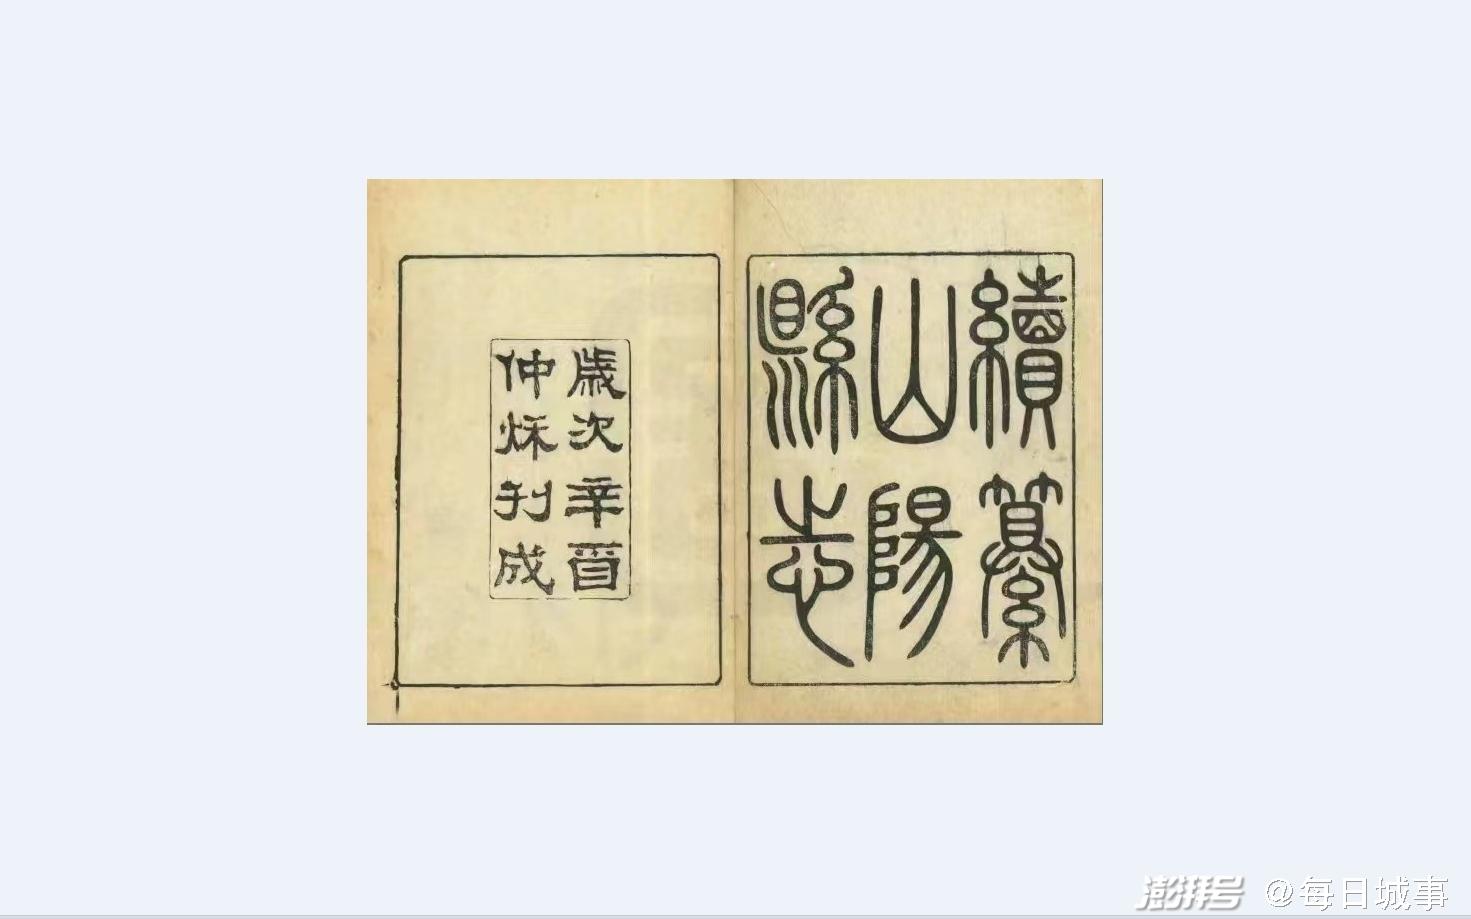 續纂
山陽
縣志
歲次辛酉
仲秌刊成
澎湃号 @每日城事